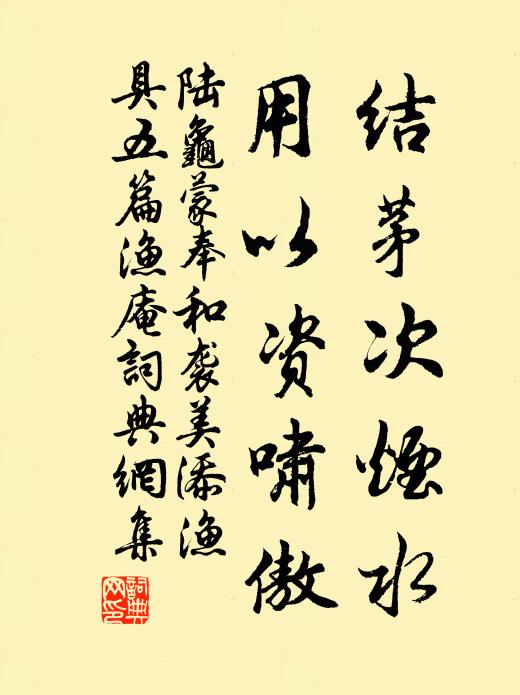 结茅次煙水
用以资啸傲
陆龜蒙奉和袭美添渔
具五篇渔庵詞典網集
詞典网印